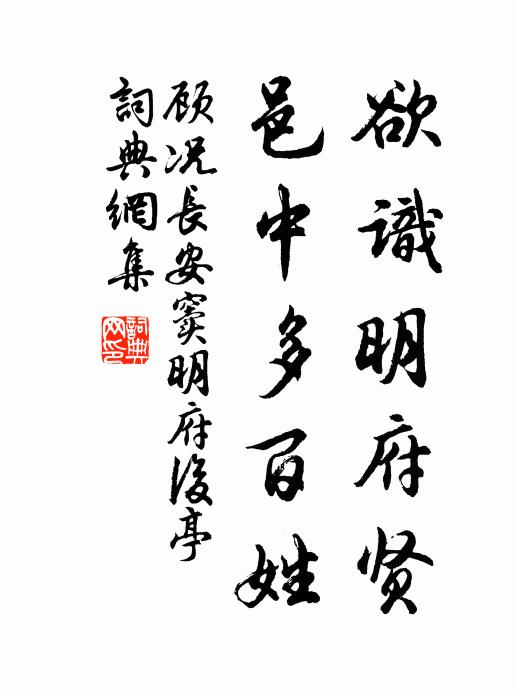 欲識明府贤
邑中多百姓
顾况長安竇明府後亭
詞典網集
詞典
网印